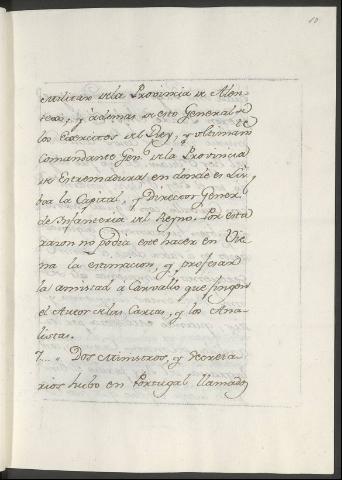 10
Militar de la Provincia de Alen-
texo, y ademas de esto General de
los Exercitos del Rey, y ultimamte
Comandante Genl. de la Provincia
de Extremadura en donde es Lis,
boa la Capital, y Director Gener.
de Infanteria del Reyno. Por esta
razon no podia este hacer en Vie
na la estimacion, y profesar
la amistad a Carvallo que fingen
el Autor de las Cartas, y los Ana-
listas.
7... " Dos Ministros, y Secreta-
rios hubo en Portugal llamados